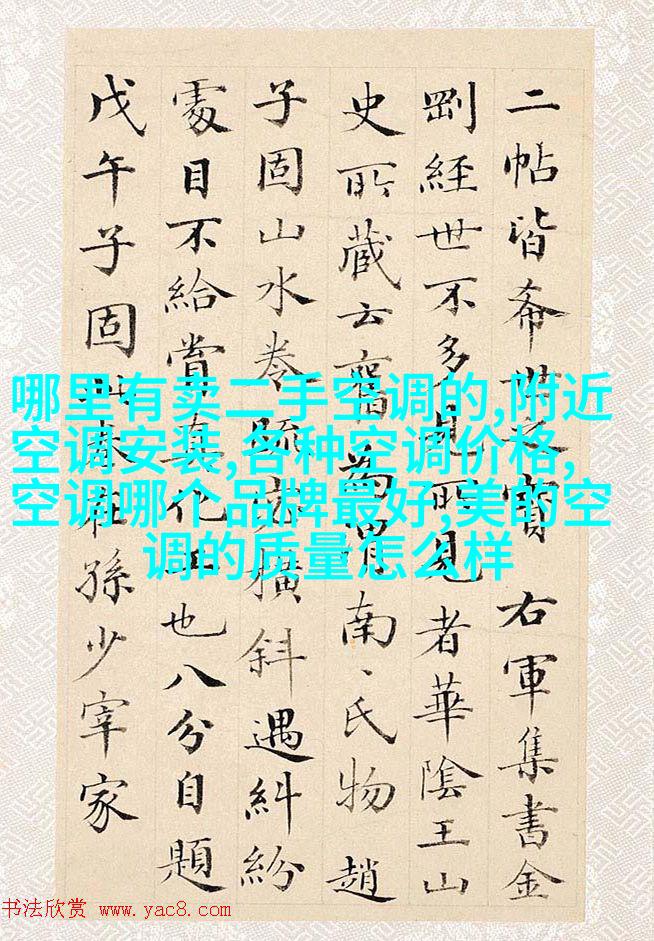 二帖皆希世之寶 右軍集書金
剛經世不多見所見者華陰王山
史所藏云舊為南、氏物趙
子固山水卷疏密橫斜遇糾紛
處目不給賞真化工也八分自題
戊午子固在孫少宰家
哪里有卖二手空调的,附近
空调安装,各种空调价格,
空调哪个品牌最好,美的空
调的质量怎么样
书法欣赏 www.yac8.com